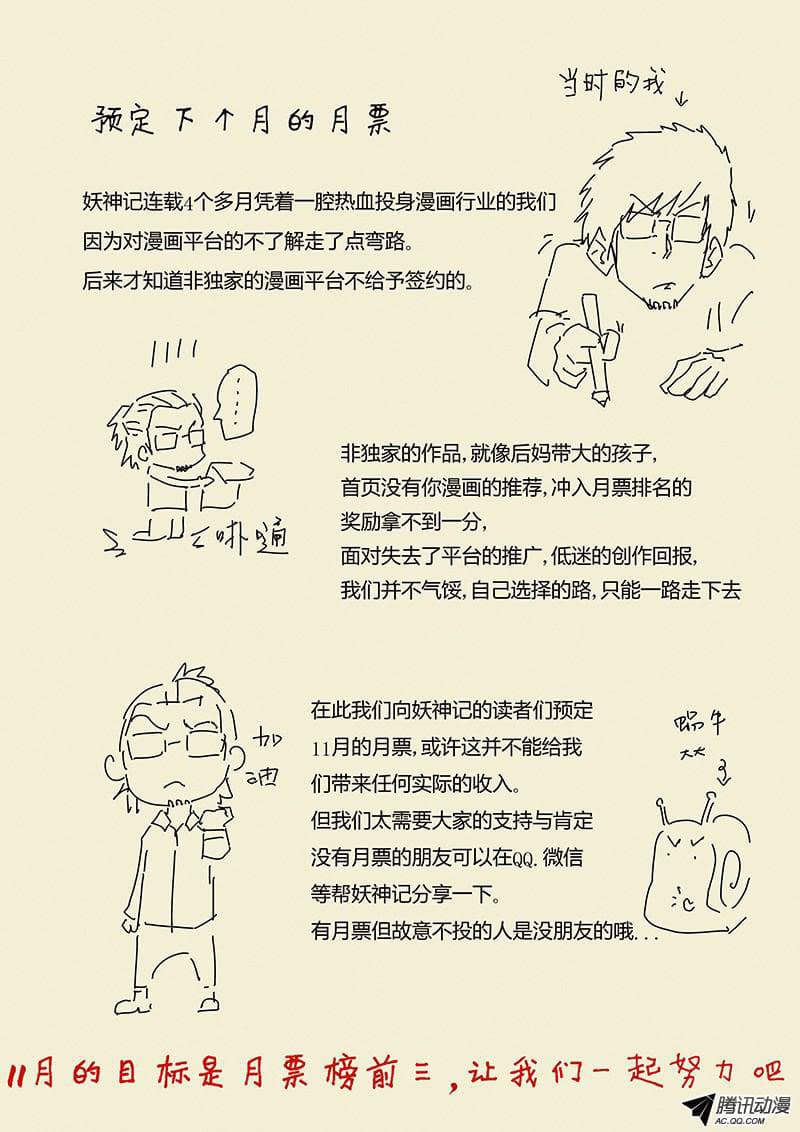 当时的我
预定下个月的月票
妖神记连载4个多月凭着一腔热血投身漫画行业的我们
因为对漫画平台的不了解走了点弯路。
后来才知道非独家的漫画平台不给予签约的。
......
扑通
非独家的作品,就像后妈带大的孩子,
首页没有你漫画的推荐,冲入月票排名的
奖励拿不到一分,
面对失去了平台的推广,低迷的创作回报,
我们并不气馁,自己选择的路,只能一路走下去
在此我们向妖神记的读者们预定
11月的月票,或许这并不能给我
们带来任何实际的收入。
但我们太需要大家的支持与肯定
没有月票的朋友可以在QQ.微信
等帮妖神记分享一下。
有月票但故意不投的人是没朋友的哦...
加
油
蜗牛
大大
11月的目标是月票榜前三,让我们一起努力吧
腾讯动漫
AC.QQ.COM